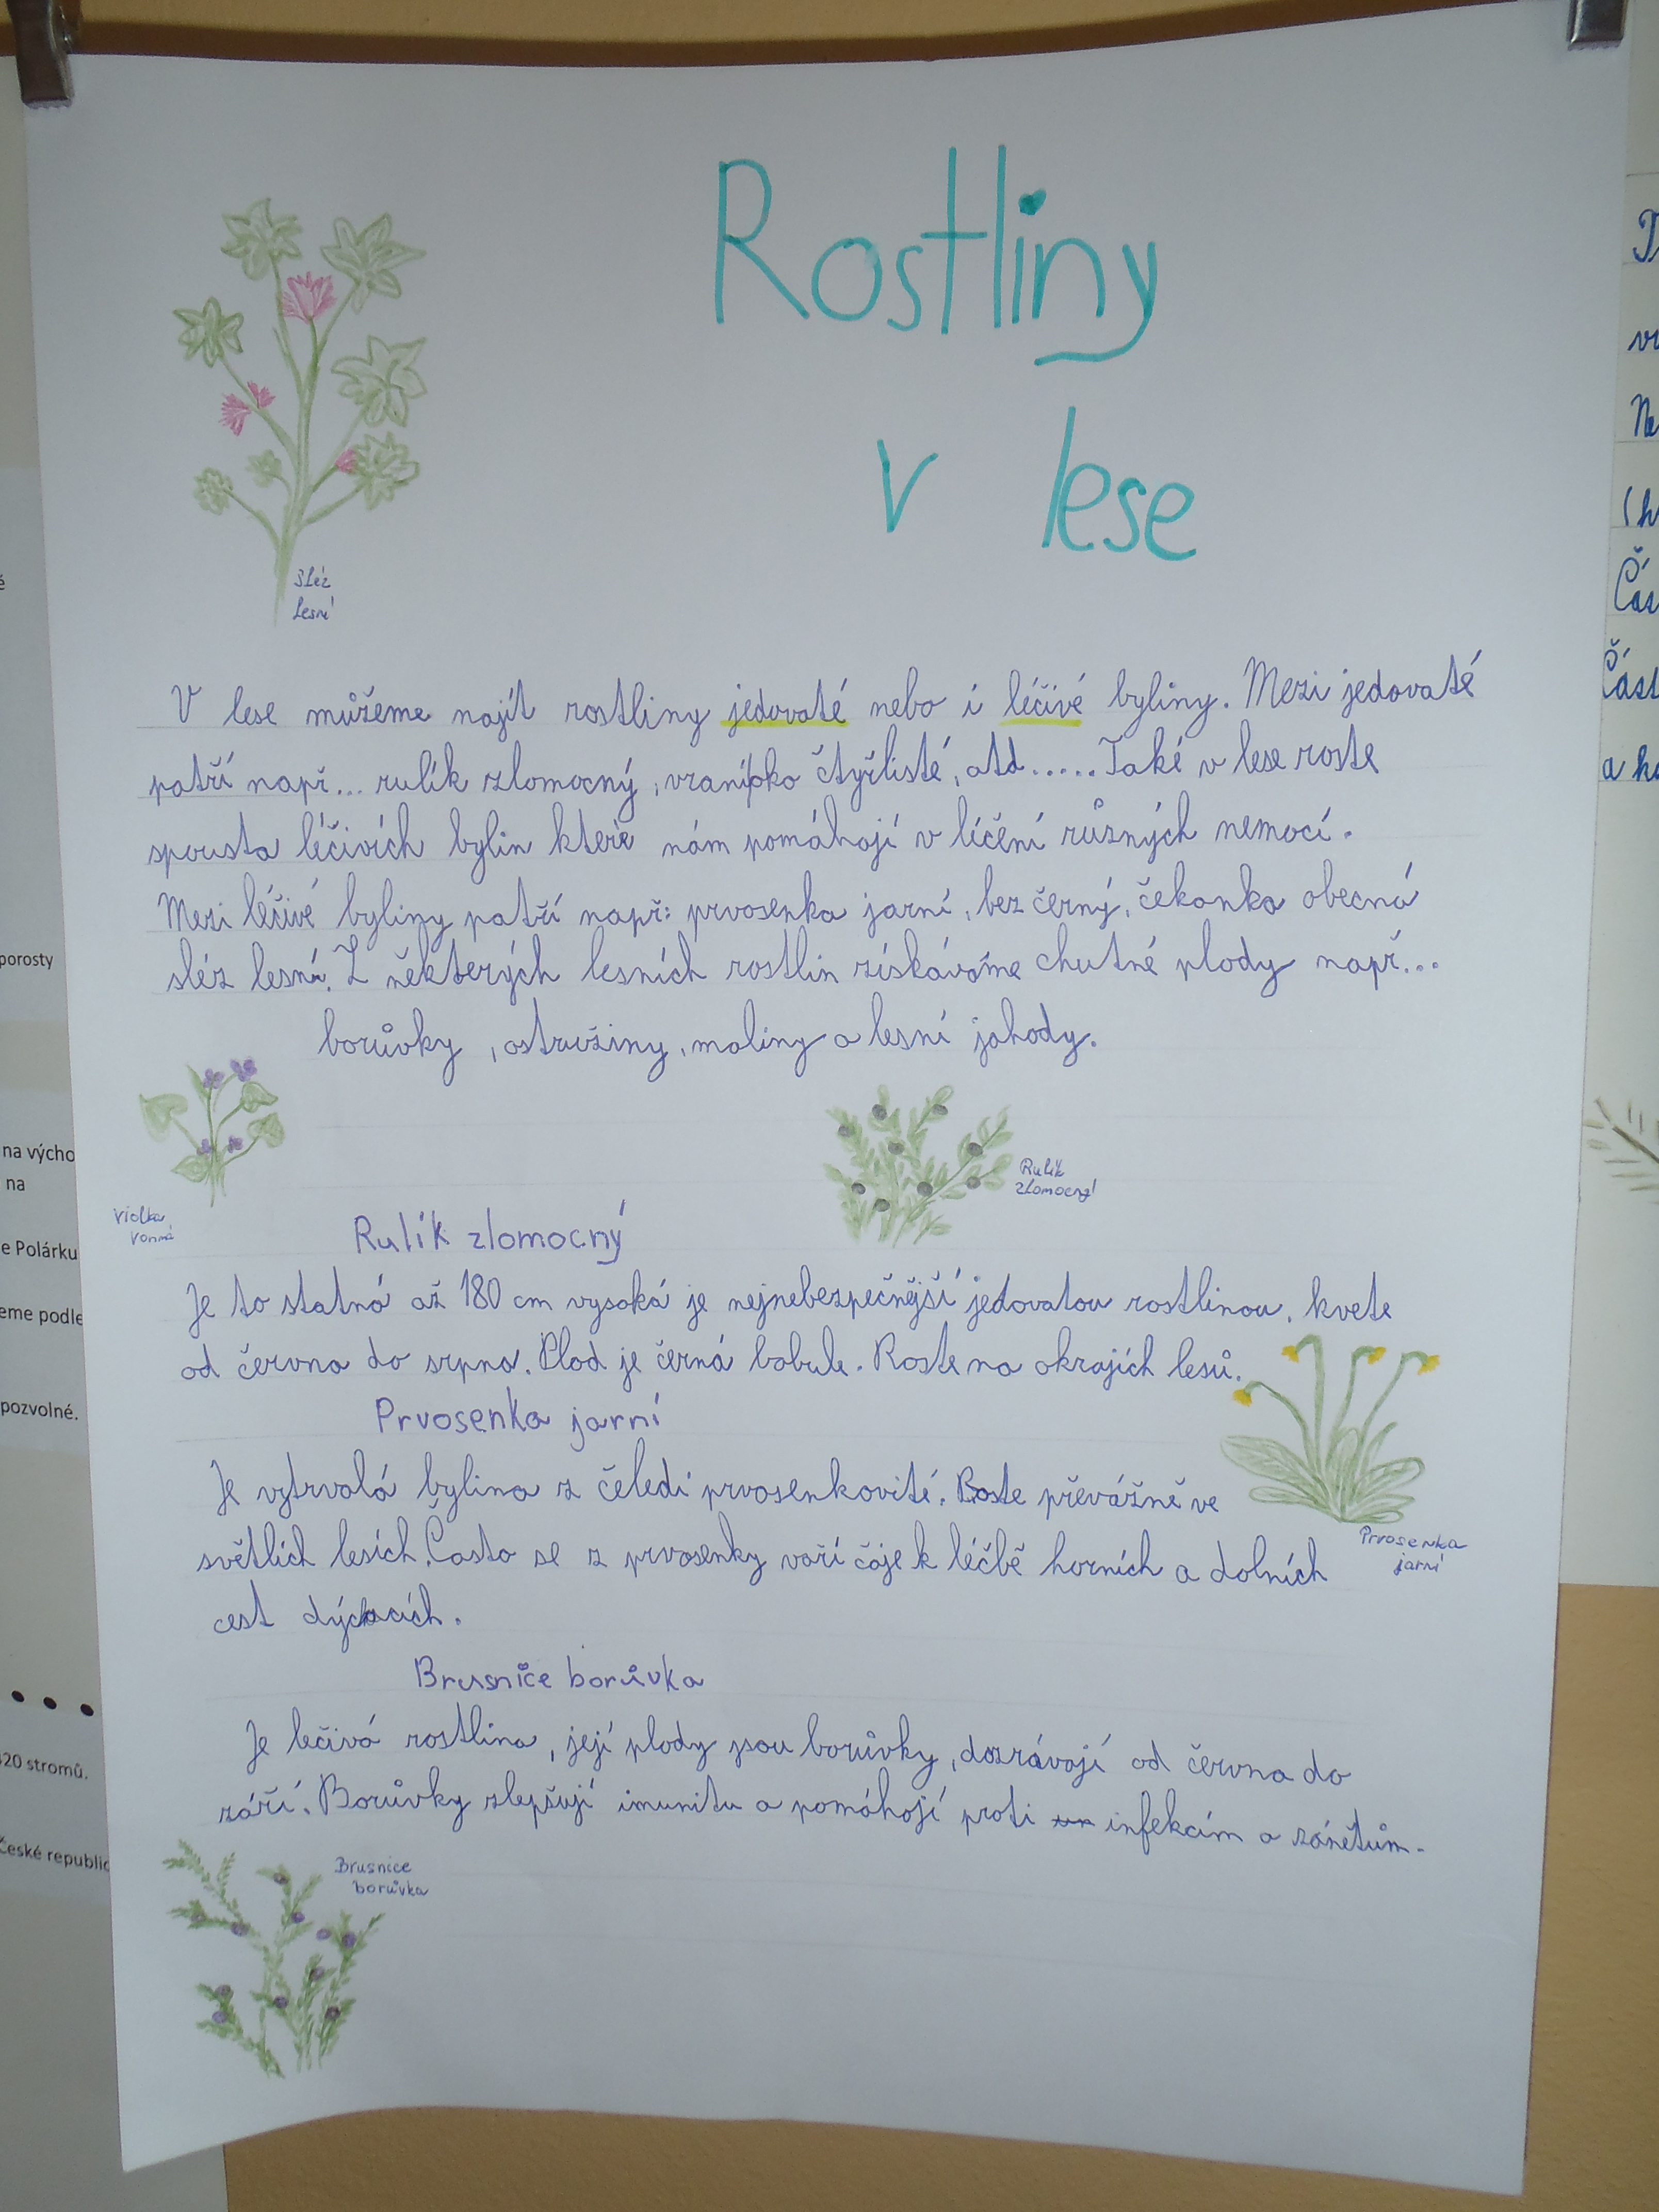 Rostliny
v lese
Sléz
lesní
V lese můžeme najít rostliny jedovaté nebo i léčivé byliny. Mezi jedovaté
patří např... rulík zlomocný, vraní oko čtyřlisté, atd..... Také v lese roste
spousta léčivích bylin které nám pomáhají v léčení různých nemocí.
Mezi léčivé byliny patří např: prvosenka jarní, bez černý, čekanka obecná
sléz lesní. Z některých lesních rostlin získáváme chutné plody např...
borůvky, ostružiny, maliny a lesní jahody.
Violka
vonná
Rulík
zlomocný
Rulík zlomocný
Je to statná až 180 cm vysoká je nejnebezpečnější jedovatou rostlinou. kvete
od června do srpna. Plod je černá bobule. Roste na okrajích lesů.
Prvosenka jarní
Je vytrvalá bylina z čeledi prvosenkovité. Roste převážně ve
světlích lesích. Často se z prvosenky vaří čaje k léčbě horních a dolních
cest dýchacích.
Prvosenka
jarní
Brusnice borůvka
Je lečivá rostlina, její plody jsou borůvky, dozrávají od června do
září. Borůvky zlepšují imunitu a pomáhají proti infekcím a zánětům.
Brusnice
borůvka
porosty
na výcho
na
e Polárku
eme podle
pozvolné.
20 stromů.
České republic